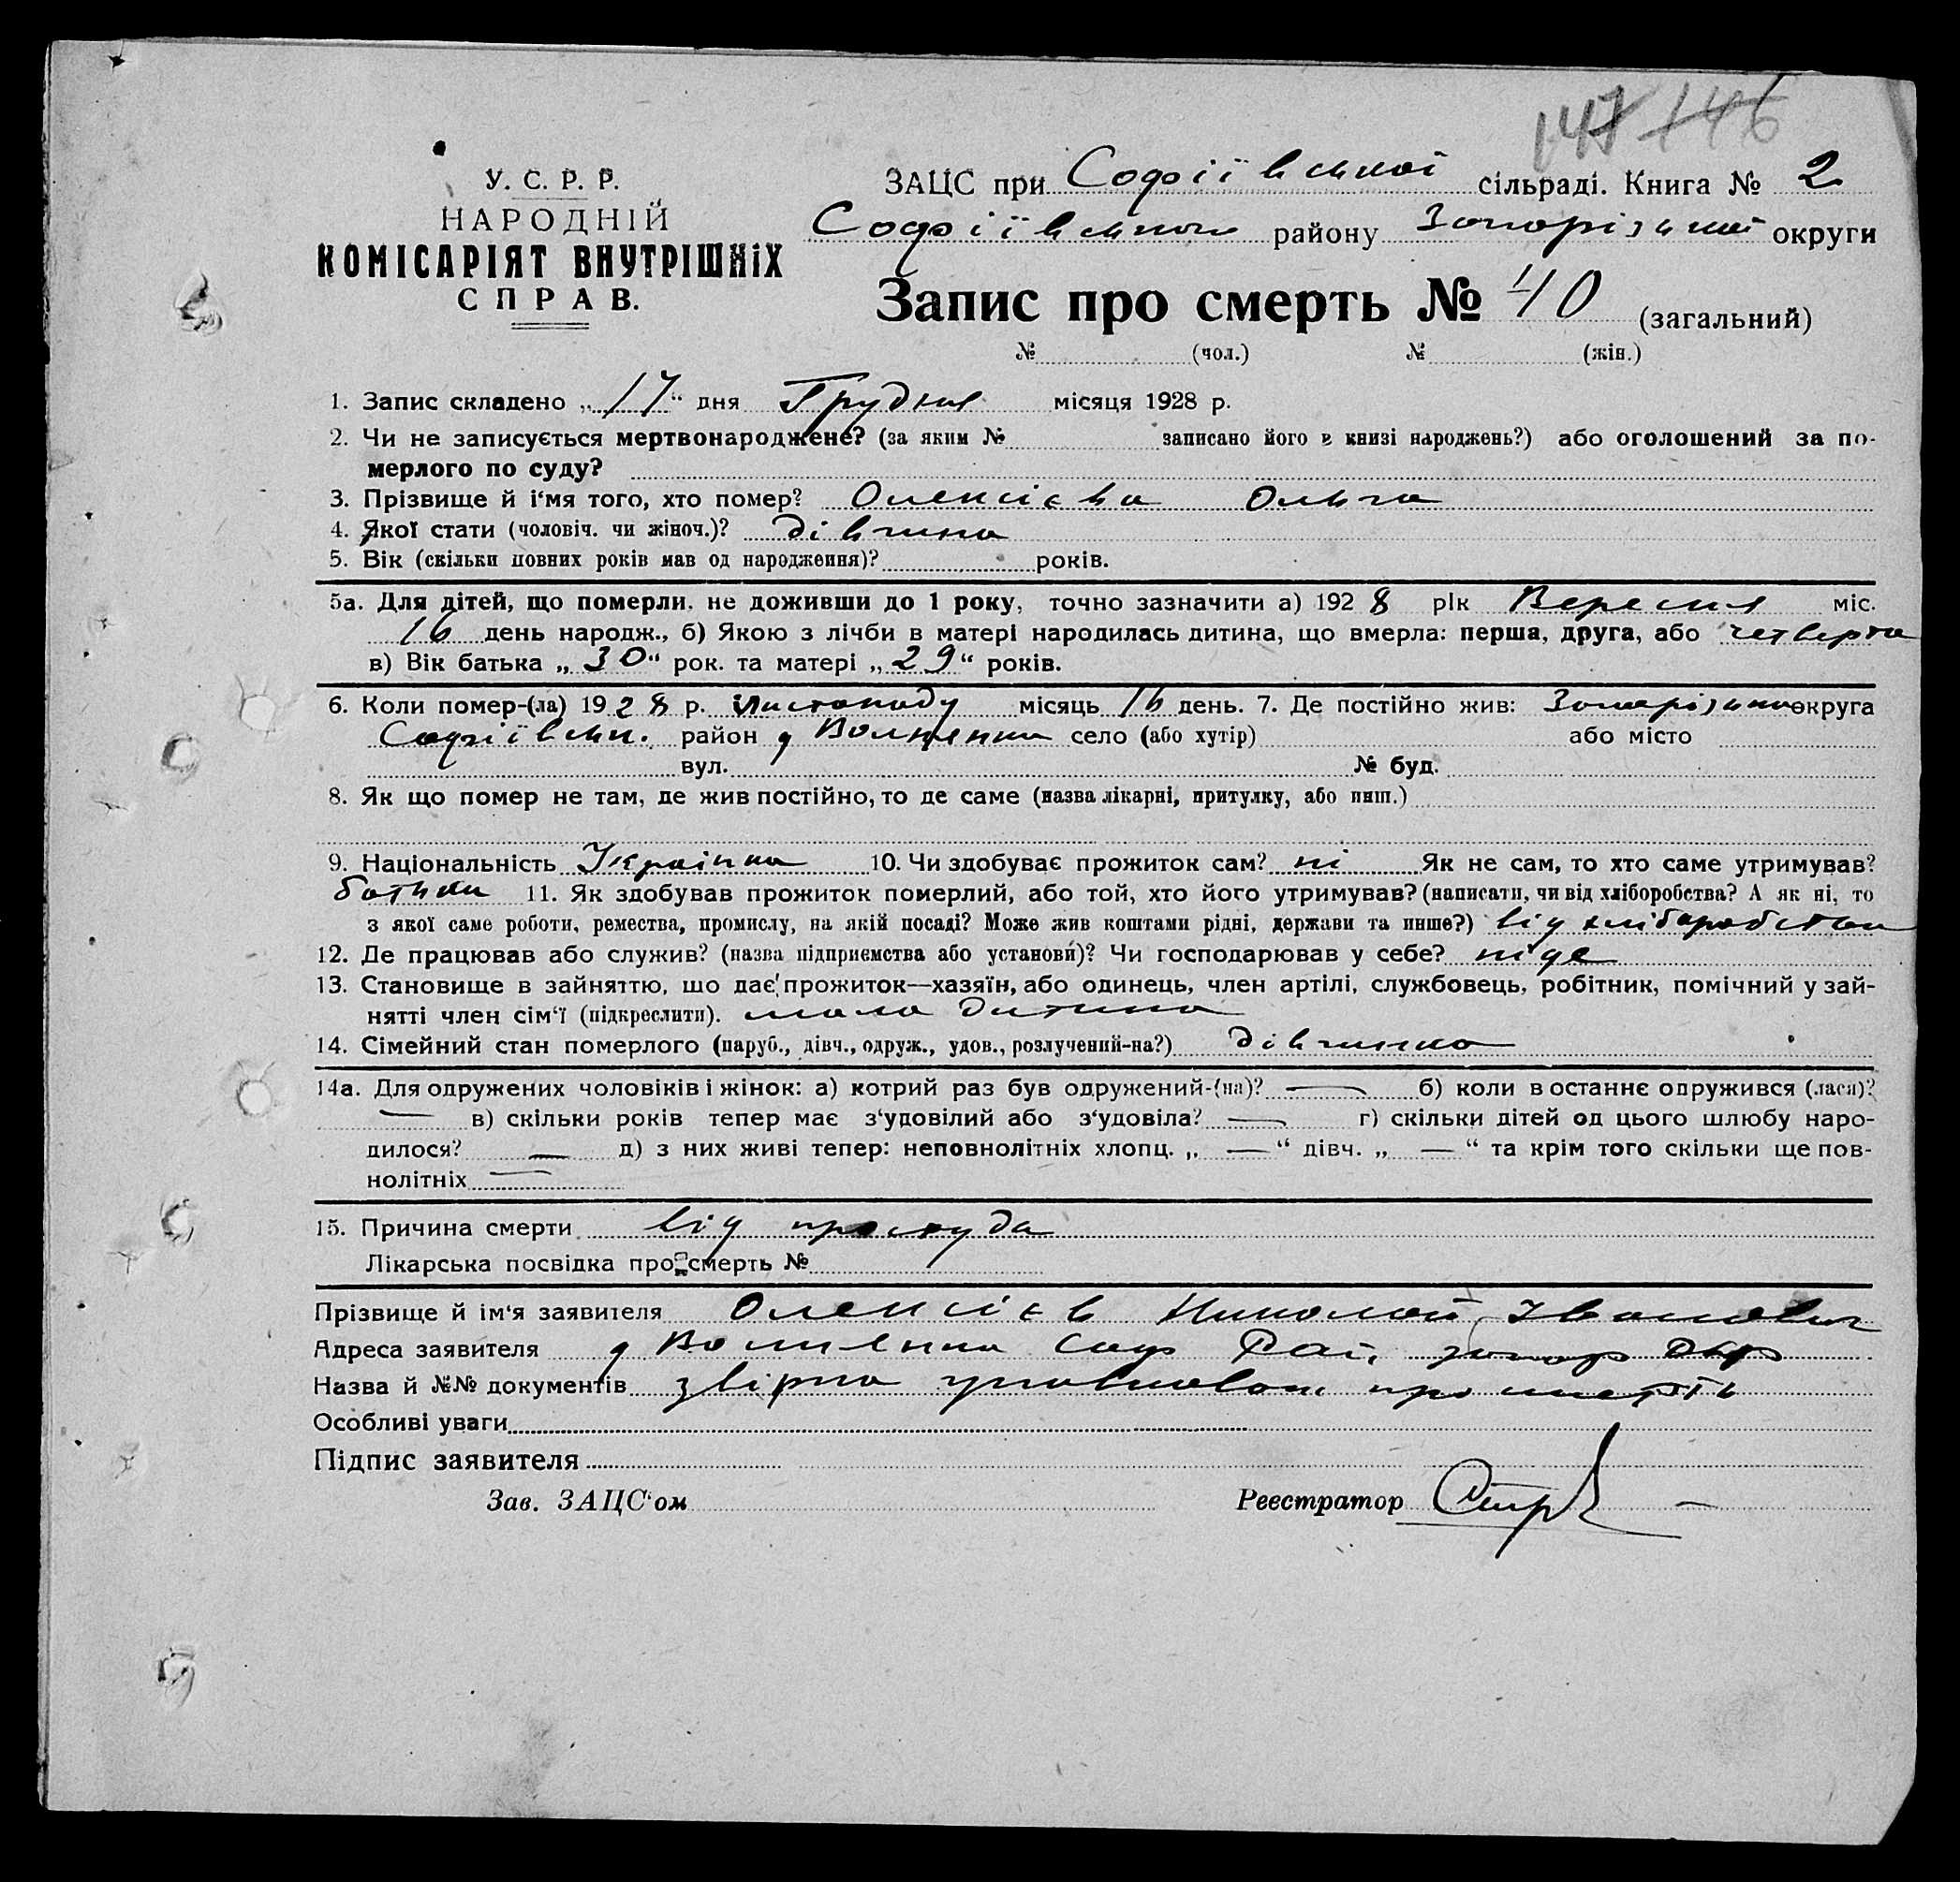 147 146
У. С. Р. Р.
НАРОДНІЙ
КОМІСАРІЯТ ВНУТРІШНІХ
СПРАВ.
ЗАЦС при Софіївській сільраді. Книга № 2
Софіївського району Запорізької округи
Запис про смерть № 40 (загальний)
№ (чол.) № (жін.)
1. Запис складено „17“ дня Грудня місяця 1928 р.
2. Чи не записується мертвонароджене? (за яким № записано його в книзі народжень?) або оголошений за по-
мерлого по суду?
3. Прізвище й і‘мя того, хто помер? Олексієва Ольга
4. Якої стати (чоловіч. чи жіноч.)? дівчина
5. Вік (скільки повних років мав од народження)? років.
5а. Для дітей, що померли, не доживши до 1 року, точно зазначити а) 1928 рік Вересня міс.
16 день народж., б) Якою з лічби в матері народилась дитина, що вмерла: перша, друга, або четверта
в) Вік батька „30“ рок. та матері „29“ років.
6. Коли помер-(ла) 1928 р. Листопаду місяць 16 день. 7. Де постійно жив: Запорізька округа
Софіївськ. район д село (або хутір) або місто
вул. № буд.
8. Як що помер не там, де жив постійно, то де саме (назва лікарні, притулку, або инш.)
9. Національність Українка 10. Чи здобуває прожиток сам? ні Як не сам, то хто саме утримував?
батьки 11. Як здобував прожиток померлий, або той, хто його утримував? (написати, чи від хліборобства? А як ні, то
з якої саме роботи, ремества, промислу, на якій посаді? Може жив коштами рідні, держави та инше?) від хліборобства
12. Де працював або служив? (назва підприємства або установи)? Чи господарював у себе? ніде
13. Становище в зайняттю, що дає прожиток—хазяїн, або одинець, член артілі, службовець, робітник, помічний у зай-
нятті член сім‘ї (підкреслити). мала дитина
14. Сімейний стан померлого (паруб., дівч., одруж., удов., розлучений-на?) дівчинка
14а. Для одружених чоловіків і жінок: а) котрий раз був одружений-(на)? — б) коли в останнє одружився (лася)?
— в) скільки років тепер має з‘удовілий або з‘удовіла? — г) скільки дітей од цього шлюбу наро-
дилося? — д) з них живі тепер: неповнолітніх хлопц. „ — “ дівч. „ — “ та крім того скільки ще пов-
нолітніх —
15. Причина смерти від простуда
Лікарська посвідка про смерть №
Прізвище й ім‘я заявителя Олексієв Николай Іванович
Адреса заявителя д Соф Рай. запор окр
Назва й №№ документів про смерть
Особливі уваги
Підпис заявителя
Зав. ЗАЦС‘ом Реєстратор